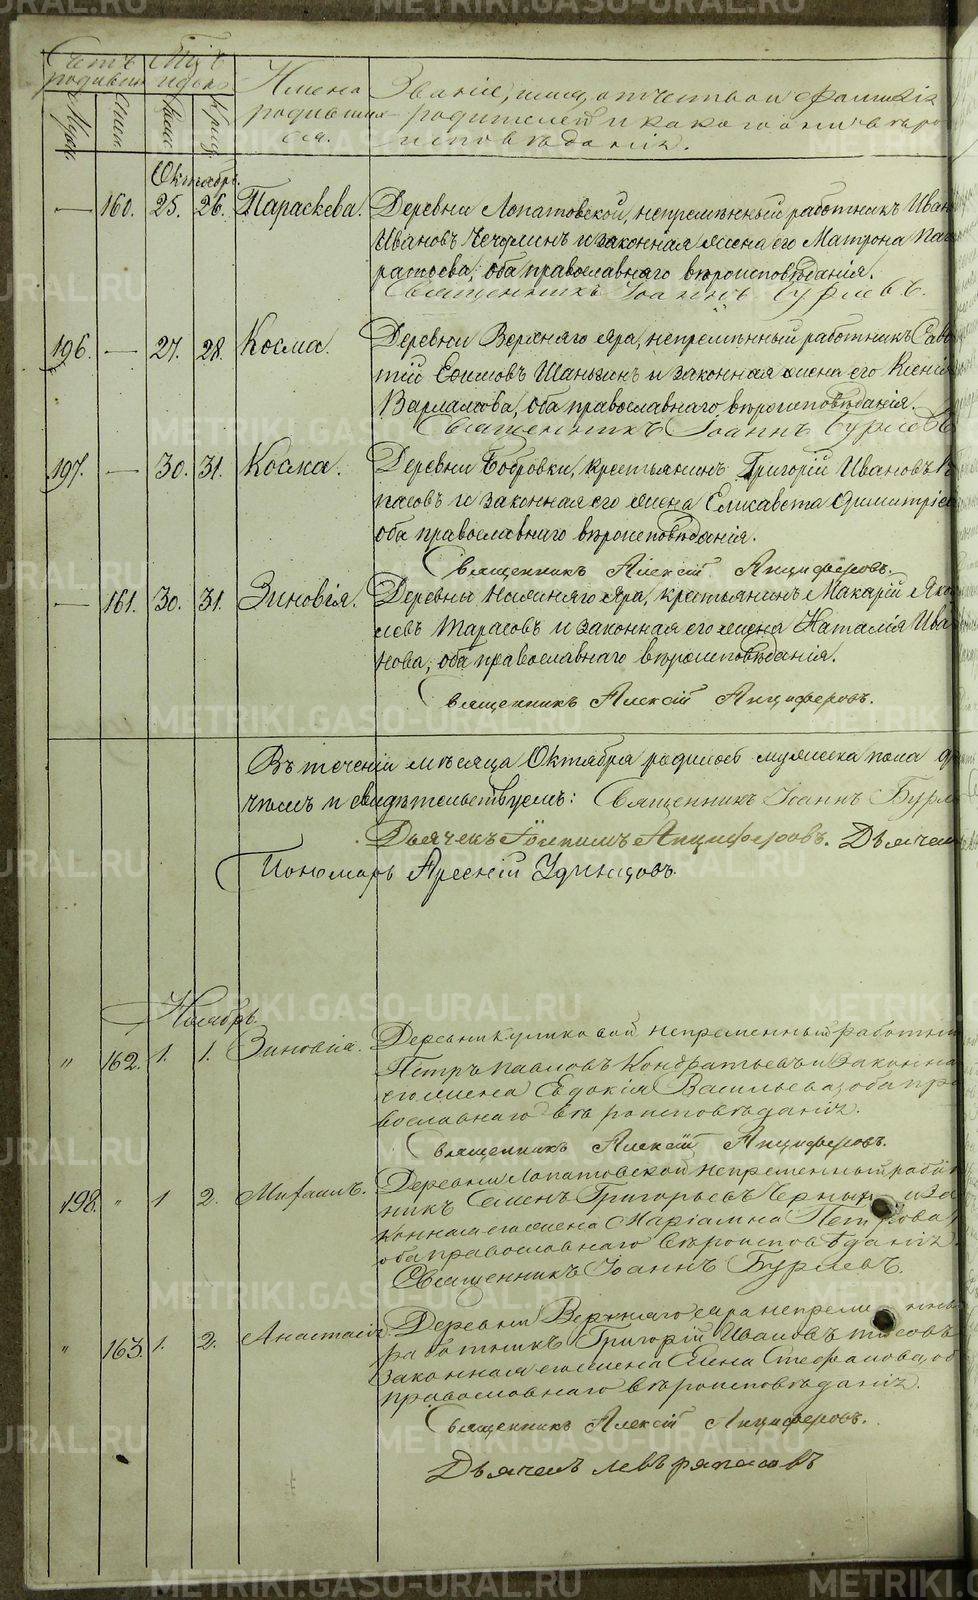 Счетъ родившихся
Мѣсяцъ и день
Муж.
Жен.
Рожд.
Крещ.
Имена родившихся.
Званіе, имя, отчество и фамилія
родителей и какого они вѣро
исповѣданія.
Октябрь.
— 160. 25. 26. Параскева. Деревни Лопатовской, непремѣнный работникъ Иван
Ивановъ и законная жена его Матрона Пан
кратоева, оба православнаго вѣроисповѣданія.
Священникъ Іоаннъ Бурлевъ.
196. — 27. 28. Косма. Деревни Верхняго Яра, непремѣнный работникъ Савв
тій Ефимовъ Шаньгинъ и законная жена его Ксенія
Варламова, оба православнаго вѣроисповѣданія.
Священникъ Іоаннъ Бурлевъ
197. — 30. 31. Косма. Деревни Бобровки, крестьянинъ Григорій Ивановъ
пасовъ и законная его жена Елисавета Димитріев
оба православнаго вѣроисповѣданія.
Священникъ Алексій Анциферовъ.
— 161. 30. 31. Зиновія. Деревни Нижняго Яра, крестьянинъ Макарій Яков
левъ Тарасовъ и законная его жена Наталія Ива
нова, оба православнаго вѣроисповѣданія.
Священникъ Алексій Анциферовъ.
Въ теченіи мѣсяца Октября родилось мужеска пола
чемъ и свидѣтельствуемъ: Священникъ Іоаннъ Бурле
Дьячекъ Анциферовъ. Дьячек
Пономарь Арсеній Удинцовъ.
Ноябрь
„ 162. 1. 1. Зиновія. Деревни Куликовой непременный работни
Петръ Павловъ Кондратьевъ и законна
его жена Евдокія Васильева, оба пра
вославнаго вѣроисповѣданія.
Священникъ Алексій Анциферовъ.
198. „ 1 2. Михаилъ. Деревни Лопатовской непременный работ
никъ Семенъ Григорьевъ Черных и за
конная его жена Маріамна Петрова,
оба православнаго вѣроисповѣданія.
Священникъ Іоаннъ Бурлевъ.
„ 163. 1. 2. Анастасія Деревни Верхняго Яра непремѣнны
работникъ Григорій Ивановъ
законная его жена Елена Стефанова, об
православнаго вѣроисповѣданія.
Священникъ Алексій Анциферовъ.
Дьячекъ Левъ Ряпасовъ
METRIKI.GASO-URAL.RU